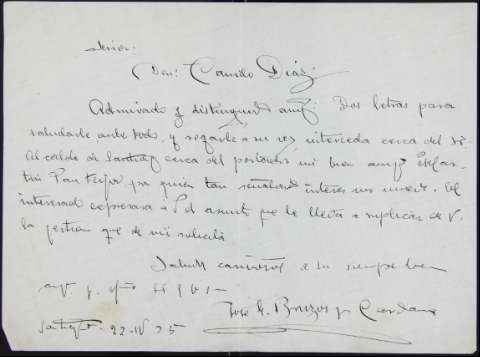 Señor:
Don: Camilo Díaz:
Admirado y distinguido amigo: Dos letras para
saludarle ante todo, y rogarle a su vez interceda cerca del Sr.
Alcalde de Santiago cerca del portador mi buen amigo
por quien tan señalado interés me mueve. El
interesado expresará a Vd asunto que le lleva a suplicar de V.
la gestión que de mi solicita
Saluda cariñoso a su siempre buen
José
Santiago 22-IV